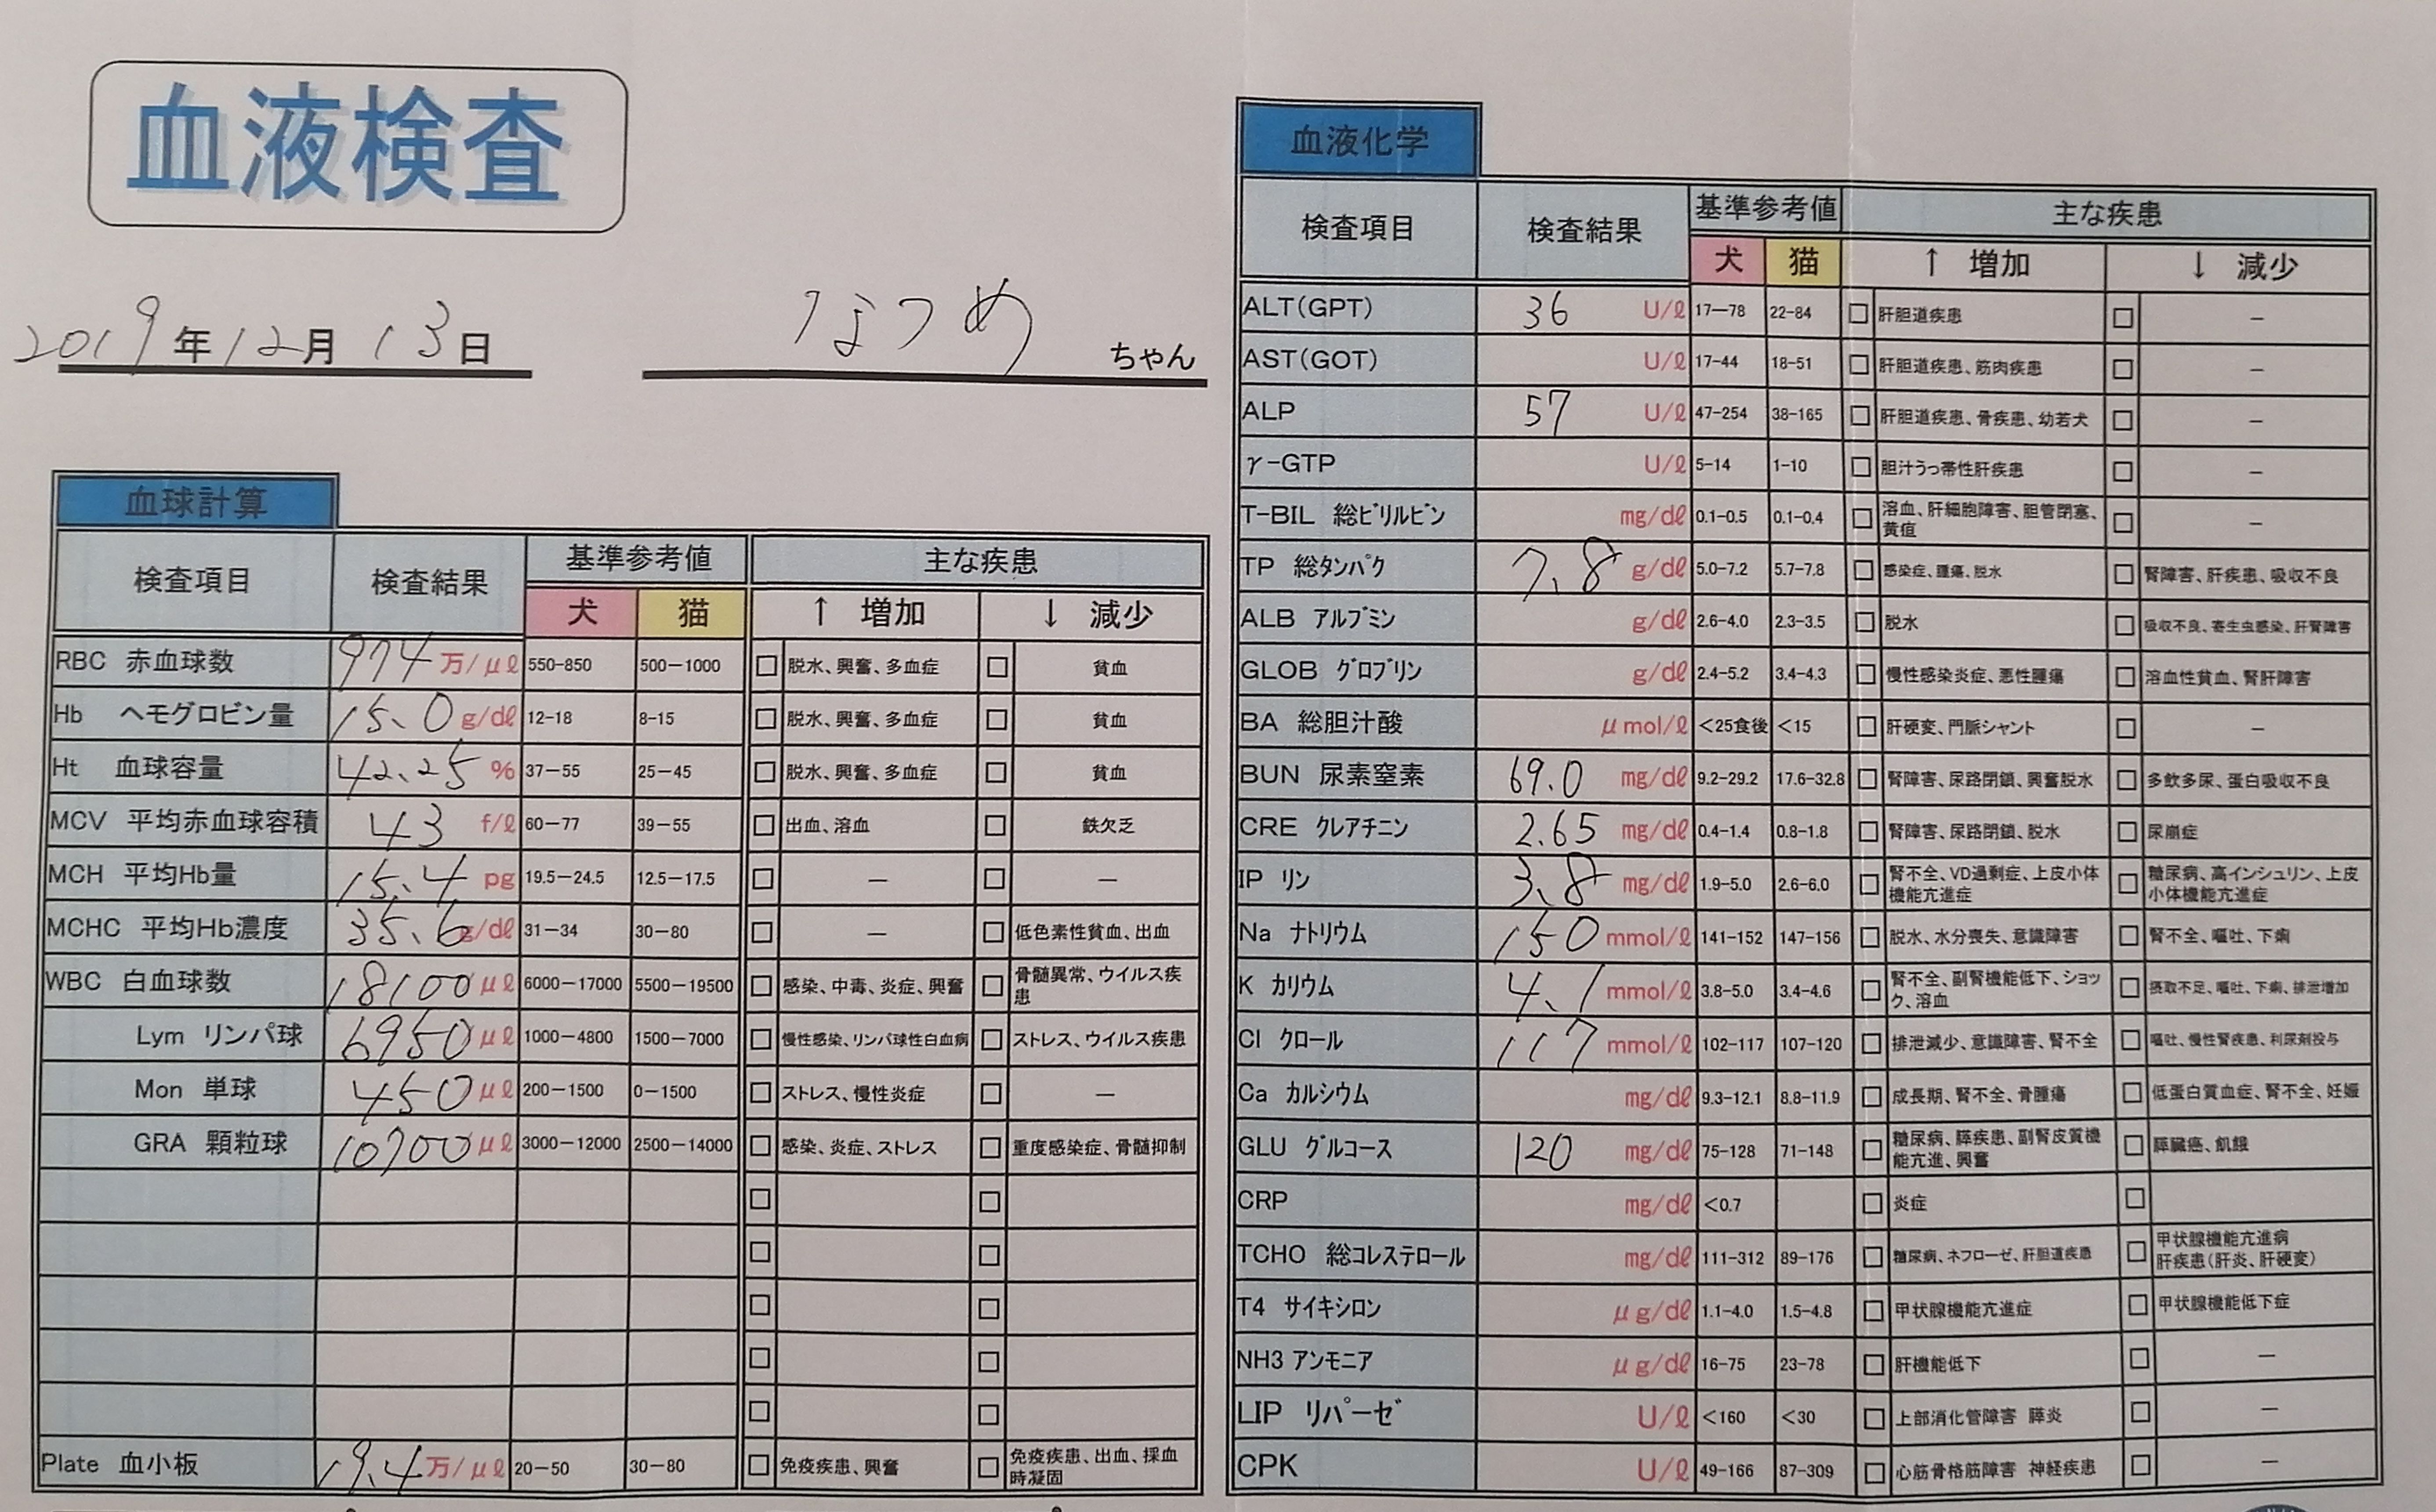 血液検査
2019年12月13日 なつめ ちゃん
血球計算
検査項目 検査結果 基準参考値 主な疾患
犬 猫 ↑ 増加 ↓ 減少
RBC 赤血球数 974 万/μℓ 550-850 500-1000 □ 脱水、興奮、多血症 □ 貧血
Hb ヘモグロビン量 15.0 g/dℓ 12-18 8-15 □ 脱水、興奮、多血症 □ 貧血
Ht 血球容量 42.25 % 37-55 25-45 □ 脱水、興奮、多血症 □ 貧血
MCV 平均赤血球容積 43 f/ℓ 60-77 39-55 □ 出血、溶血 □ 鉄欠乏
MCH 平均Hb量 15.4 pg 19.5-24.5 12.5-17.5 □ - □ -
MCHC 平均Hb濃度 35.6 g/dℓ 31-34 30-80 □ - □ 低色素性貧血、出血
WBC 白血球数 18100 μℓ 6000-17000 5500-19500 □ 感染、中毒、炎症、興奮 □ 骨髄異常、ウイルス疾患
Lym リンパ球 6950 μℓ 1000-4800 1500-7000 □ 慢性感染、リンパ球性白血病 □ ストレス、ウイルス疾患
Mon 単球 450 μℓ 200-1500 0-1500 □ ストレス、慢性炎症 □ -
GRA 顆粒球 10700 μℓ 3000-12000 2500-14000 □ 感染、炎症、ストレス □ 重度感染症、骨髄抑制
□ □
□ □
□ □
□ □
□ □
Plate 血小板 19.4 万/μℓ 20-50 30-80 □ 免疫疾患、興奮 □ 免疫疾患、出血、採血時凝固
血液化学
検査項目 検査結果 基準参考値 主な疾患
犬 猫 ↑ 増加 ↓ 減少
ALT(GPT) 36 U/ℓ 17-78 22-84 □ 肝胆道疾患 □ -
AST(GOT) U/ℓ 17-44 18-51 □ 肝胆道疾患、筋肉疾患 □ -
ALP 57 U/ℓ 47-254 38-165 □ 肝胆道疾患、骨疾患、幼若犬 □ -
γ-GTP U/ℓ 5-14 1-10 □ 胆汁うっ帯性肝疾患 □ -
T-BIL 総ビリルビン mg/dℓ 0.1-0.5 0.1-0.4 □ 溶血、肝細胞障害、胆管閉塞、黄疸 □ -
TP 総タンパク 7.8 g/dℓ 5.0-7.2 5.7-7.8 □ 感染症、腫瘍、脱水 □ 腎障害、肝疾患、吸収不良
ALB アルブミン g/dℓ 2.6-4.0 2.3-3.5 □ 脱水 □ 吸収不良、寄生虫感染、肝腎障害
GLOB グロブリン g/dℓ 2.4-5.2 3.4-4.3 □ 慢性感染炎症、悪性腫瘍 □ 溶血性貧血、腎肝障害
BA 総胆汁酸 μmol/ℓ <25食後 <15 □ 肝硬変、門脈シャント □ -
BUN 尿素窒素 69.0 mg/dℓ 9.2-29.2 17.6-32.8 □ 腎障害、尿路閉鎖、興奮脱水 □ 多飲多尿、蛋白吸収不良
CRE クレアチニン 2.65 mg/dℓ 0.4-1.4 0.8-1.8 □ 腎障害、尿路閉鎖、脱水 □ 尿崩症
IP リン 3.8 mg/dℓ 1.9-5.0 2.6-6.0 □ 腎不全、VD過剰症、上皮小体機能亢進症 □ 糖尿病、高インシュリン、上皮小体機能亢進症
Na ナトリウム 150 mmol/ℓ 141-152 147-156 □ 脱水、水分喪失、意識障害 □ 腎不全、嘔吐、下痢
K カリウム 4.1 mmol/ℓ 3.8-5.0 3.4-4.6 □ 腎不全、副腎機能低下、ショック、溶血 □ 摂取不足、嘔吐、下痢、排泄増加
Cl クロール 117 mmol/ℓ 102-117 107-120 □ 排泄減少、意識障害、腎不全 □ 嘔吐、慢性腎疾患、利尿剤投与
Ca カルシウム mg/dℓ 9.3-12.1 8.8-11.9 □ 成長期、腎不全、骨腫瘍 □ 低蛋白質血症、腎不全、妊娠
GLU グルコース 120 mg/dℓ 75-128 71-148 □ 糖尿病、膵疾患、副腎皮質機能亢進、興奮 □ 膵臓癌、飢餓
CRP mg/dℓ <0.7 □ 炎症 □
TCHO 総コレステロール mg/dℓ 111-312 89-176 □ 糖尿病、ネフローゼ、肝胆道疾患 □ 甲状腺機能亢進病 肝疾患(肝炎、肝硬変)
T4 サイキシロン μg/dℓ 1.1-4.0 1.5-4.8 □ 甲状腺機能亢進症 □ 甲状腺機能低下症
NH3 アンモニア μg/dℓ 16-75 23-78 □ 肝機能低下 □ -
LIP リパーゼ U/ℓ <160 <30 □ 上部消化管障害 膵炎 □ -
CPK U/ℓ 49-166 87-309 □ 心筋骨格筋障害 神経疾患 □ -